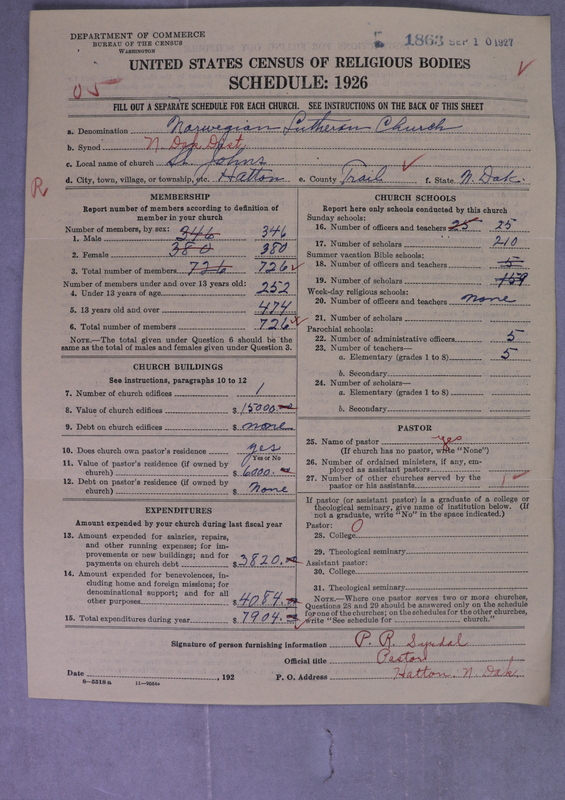 DEPARTMENT OF COMMERCE
BUREAU OF THE CENSUS
WASHINGTON
1863 SEP 10 1927
UNITED STATES CENSUS OF RELIGIOUS BODIES
SCHEDULE: 1926
05
FILL OUT A SEPARATE SCHEDULE FOR EACH CHURCH. SEE INSTRUCTIONS ON THE BACK OF THIS SHEET
a. Denomination Norwegian Lutheran Church
b. Synod N. Dak Dist
c. Local name of church St. Johns
d. City, town, village, or township, etc. Hatton e. County Trail f. State N. Dak.
R
MEMBERSHIP
Report number of members according to definition of
member in your church
Number of members, by sex:
1. Male 346 346
2. Female 380 380
3. Total number of members 726 726
Number of members under and over 13 years old:
4. Under 13 years of age 252
5. 13 years old and over 474
6. Total number of members 726
NOTE.—The total given under Question 6 should be
same as the total of males and females given under Question 3.
CHURCH BUILDINGS
See instructions, paragraphs 10 to 12
7. Number of church edifices 1
8. Value of church edifices $ 15000.
9. Debt on church edifices $ none
10. Does church own pastor's residence? yes
Yes or No
11. Value of pastor's residence (if owned by
church) $ 6000.
12. Debt on pastor's residence (if owned by
church) $ None
EXPENDITURES
Amount expended by your church during last fiscal year
13. Amount expended for salaries, repairs,
and other running expenses; for im-
provements or new buildings; and for
payments on church debt $ 3820.
14. Amount expended for benevolences, in-
cluding home and foreign missions; for
denominational support; and for all
other purposes $ 4084.
15. Total expenditures during year $ 7904.
CHURCH SCHOOLS
Report here only schools conducted by this church
Sunday schools:
16. Number of officers and teachers 25 25
17. Number of scholars 210
Summer vacation Bible schools:
18. Number of officers and teachers 5
19. Number of scholars 159
Week-day religious schools:
20. Number of officers and teachers none
21. Number of scholars
Parochial schools:
22. Number of administrative officers 5
23. Number of teachers—
a. Elementary (grades 1 to 8) 5
b. Secondary
24. Number of scholars—
a. Elementary (grades 1 to 8)
b. Secondary
PASTOR
25. Name of pastor yes
(If church has no pastor, write "None")
26. Number of ordained ministers, if any, em-
ployed as assistant pastors
27. Number of other churches served by the
pastor or his assistants 1
If pastor (or assistant pastor) is a graduate of a college or
theological seminary, give name of institution below. (If
not a graduate, write "No" in the space indicated.)
Pastor: 0
28. College
29. Theological seminary
Assistant pastor:
30. College
31. Theological seminary
NOTE.—Where one pastor serves two or more churches,
Questions 28 and 29 should be answered only on the schedule
for one of the churches; on the schedules for the other churches,
write "See schedule for church."
Signature of person furnishing information P. R. Syrdal
Official title Pastor
Date , 192 P. O. Address Hatton, N. Dak.